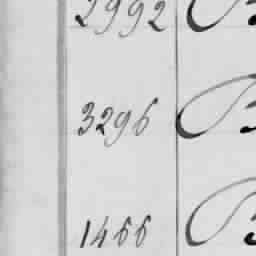 2992 B
3296 B
1466 B